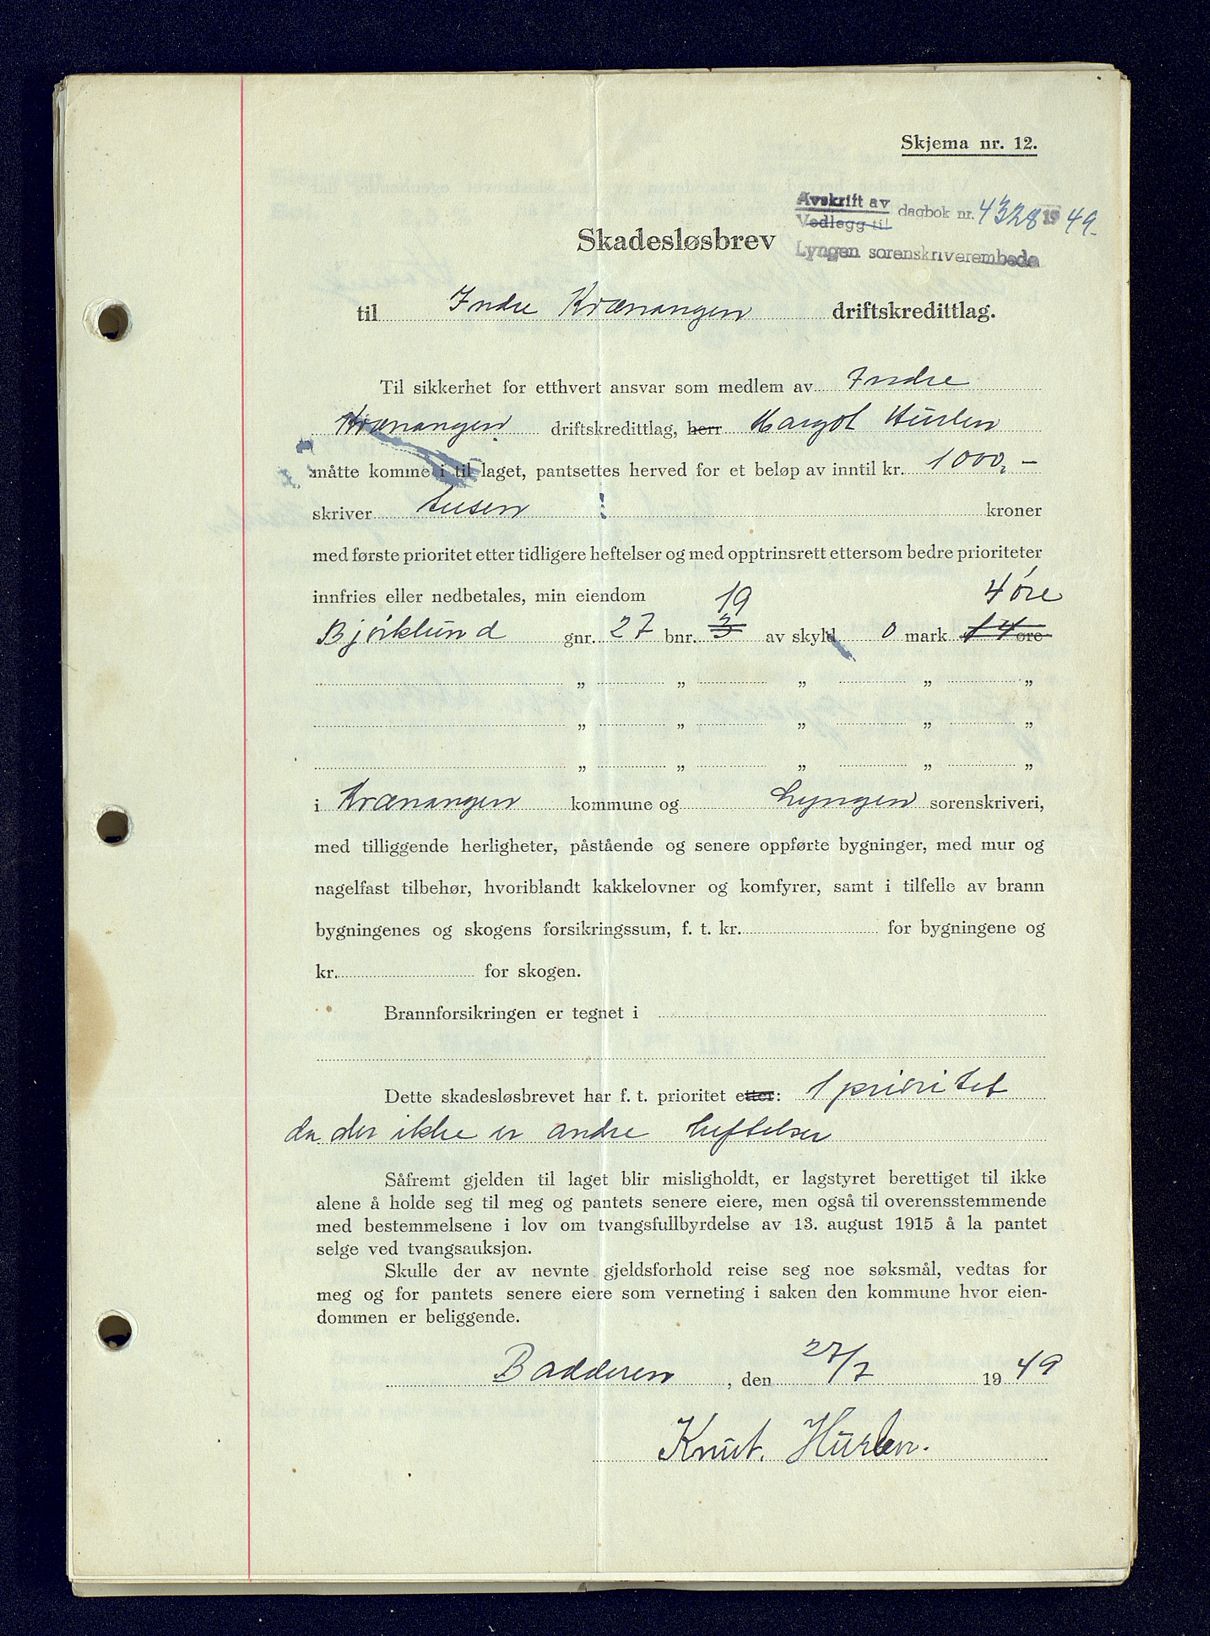 Skjema nr. 12.
Avskrift av
Vedlegg til dagbok nr. 4328 1949.
Lyngen sorenskriverembede
Skadesløsbrev
til Indre Kvænangen driftskredittlag.
Til sikkerhet for etthvert ansvar som medlem av Indre
Kvænangen driftskredittlag, herr Margot Hurlen
måtte komme i til laget, pantsettes herved for et beløp av inntil kr. 1000,-
skriver tusen kroner
med første prioritet etter tidligere heftelser og med opptrinsrett ettersom bedre prioriteter
innfries eller nedbetales, min eiendom 19 4 øre
Bjørklund gnr. 27 bnr. 3 av skyld 0 mark 14 øre
„ „ „ „ „
„ „ „ „ „
„ „ „ „ „
i Kvænangen kommune og Lyngen sorenskriveri,
med tilliggende herligheter, påstående og senere oppførte bygninger, med mur og
nagelfast tilbehør, hvoriblandt kakkelovner og komfyrer, samt i tilfelle av brann
bygningenes og skogens forsikringssum, f. t. kr. for bygningene og
kr. for skogen.
Brannforsikringen er tegnet i
Dette skadesløsbrevet har f. t. prioritet etter: 1 prioritet
da der ikke er andre heftelser
Såfremt gjelden til laget blir misligholdt, er lagstyret berettiget til ikke
alene å holde seg til meg og pantets senere eiere, men også til overensstemmende
med bestemmelsene i lov om tvangsfullbyrdelse av 13. august 1915 å la pantet
selge ved tvangsauksjon.
Skulle der av nevnte gjeldsforhold reise seg noe søksmål, vedtas for
meg og for pantets senere eiere som verneting i saken den kommune hvor eien-
dommen er beliggende.
Badderen, den 27/7 1949
Knut. Hurlen.